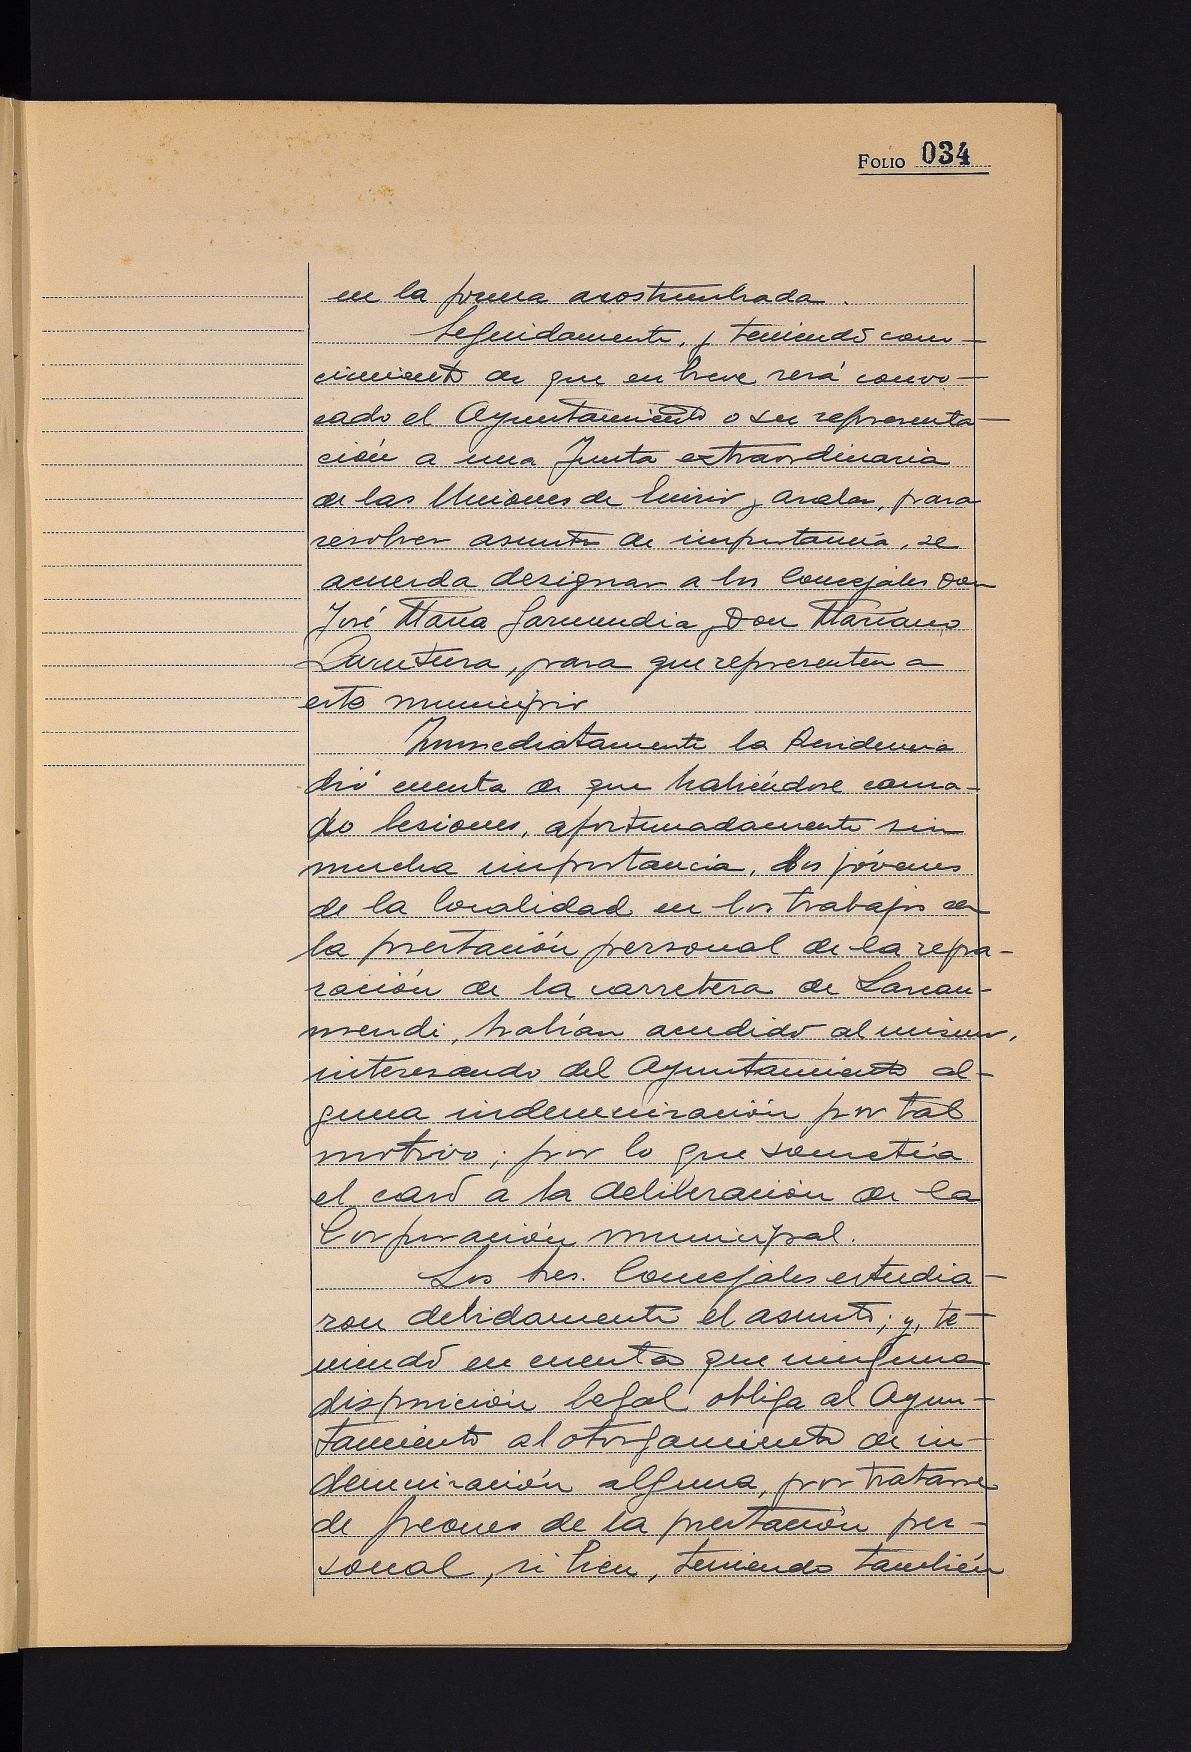 FOLIO 034
en la forma acostumbrada.
Seguidamente, y teniendo cono-
cimiento de que en breve será convo-
cado el Ayuntamiento o su representa-
ción a una Junta extraordinaria
de las Uniones de Enirio y Aralar, para
resolver asunto de importancia, se
acuerda designar a los Concejales Don
José María Garmendia y Don Mariano
para que representen a
este municipio
Inmediatamente la Presidencia
dió cuenta de que habiéndose causa-
do lesiones, afortunadamente sin
mucha importancia, dos jóvenes
de la localidad en los trabajos de
la prestación personal de la repa-
ración de la carretera de Larraun-
mendi, habían acudido al mismo,
interesando del Ayuntamiento al-
guna indemnización por tal
motivo; por lo que sometía
el caso a la deliberación de la
Corporación municipal.
Los tres. Concejales estudia-
ron debidamente el asunto; y, te-
niendo en cuenta que ninguna
disposición legal obliga al Ayun-
tamiento al otorgamiento de in-
demnización alguna, por tratarse
de peones de la prestación per-
sonal, si bien, teniendo también